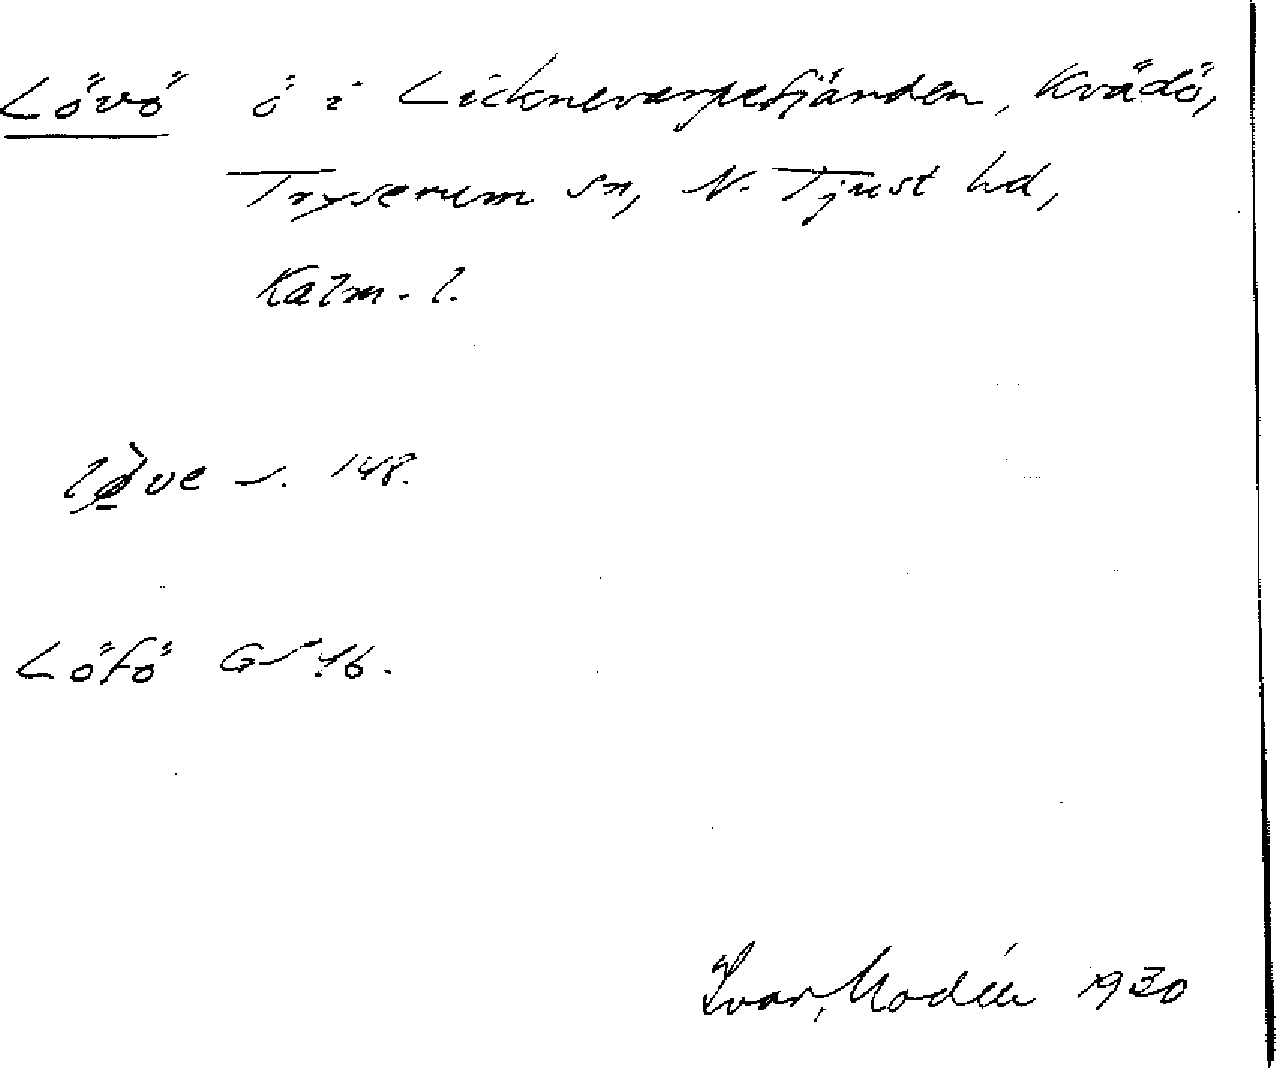 Lövö ö i Licknevarpefjärden, Kvädö,
Tryserum sn, N. Tjust hd,
Kalm. l.
s. 148.
Löfö GS 46.
Ivar Modéer 1930